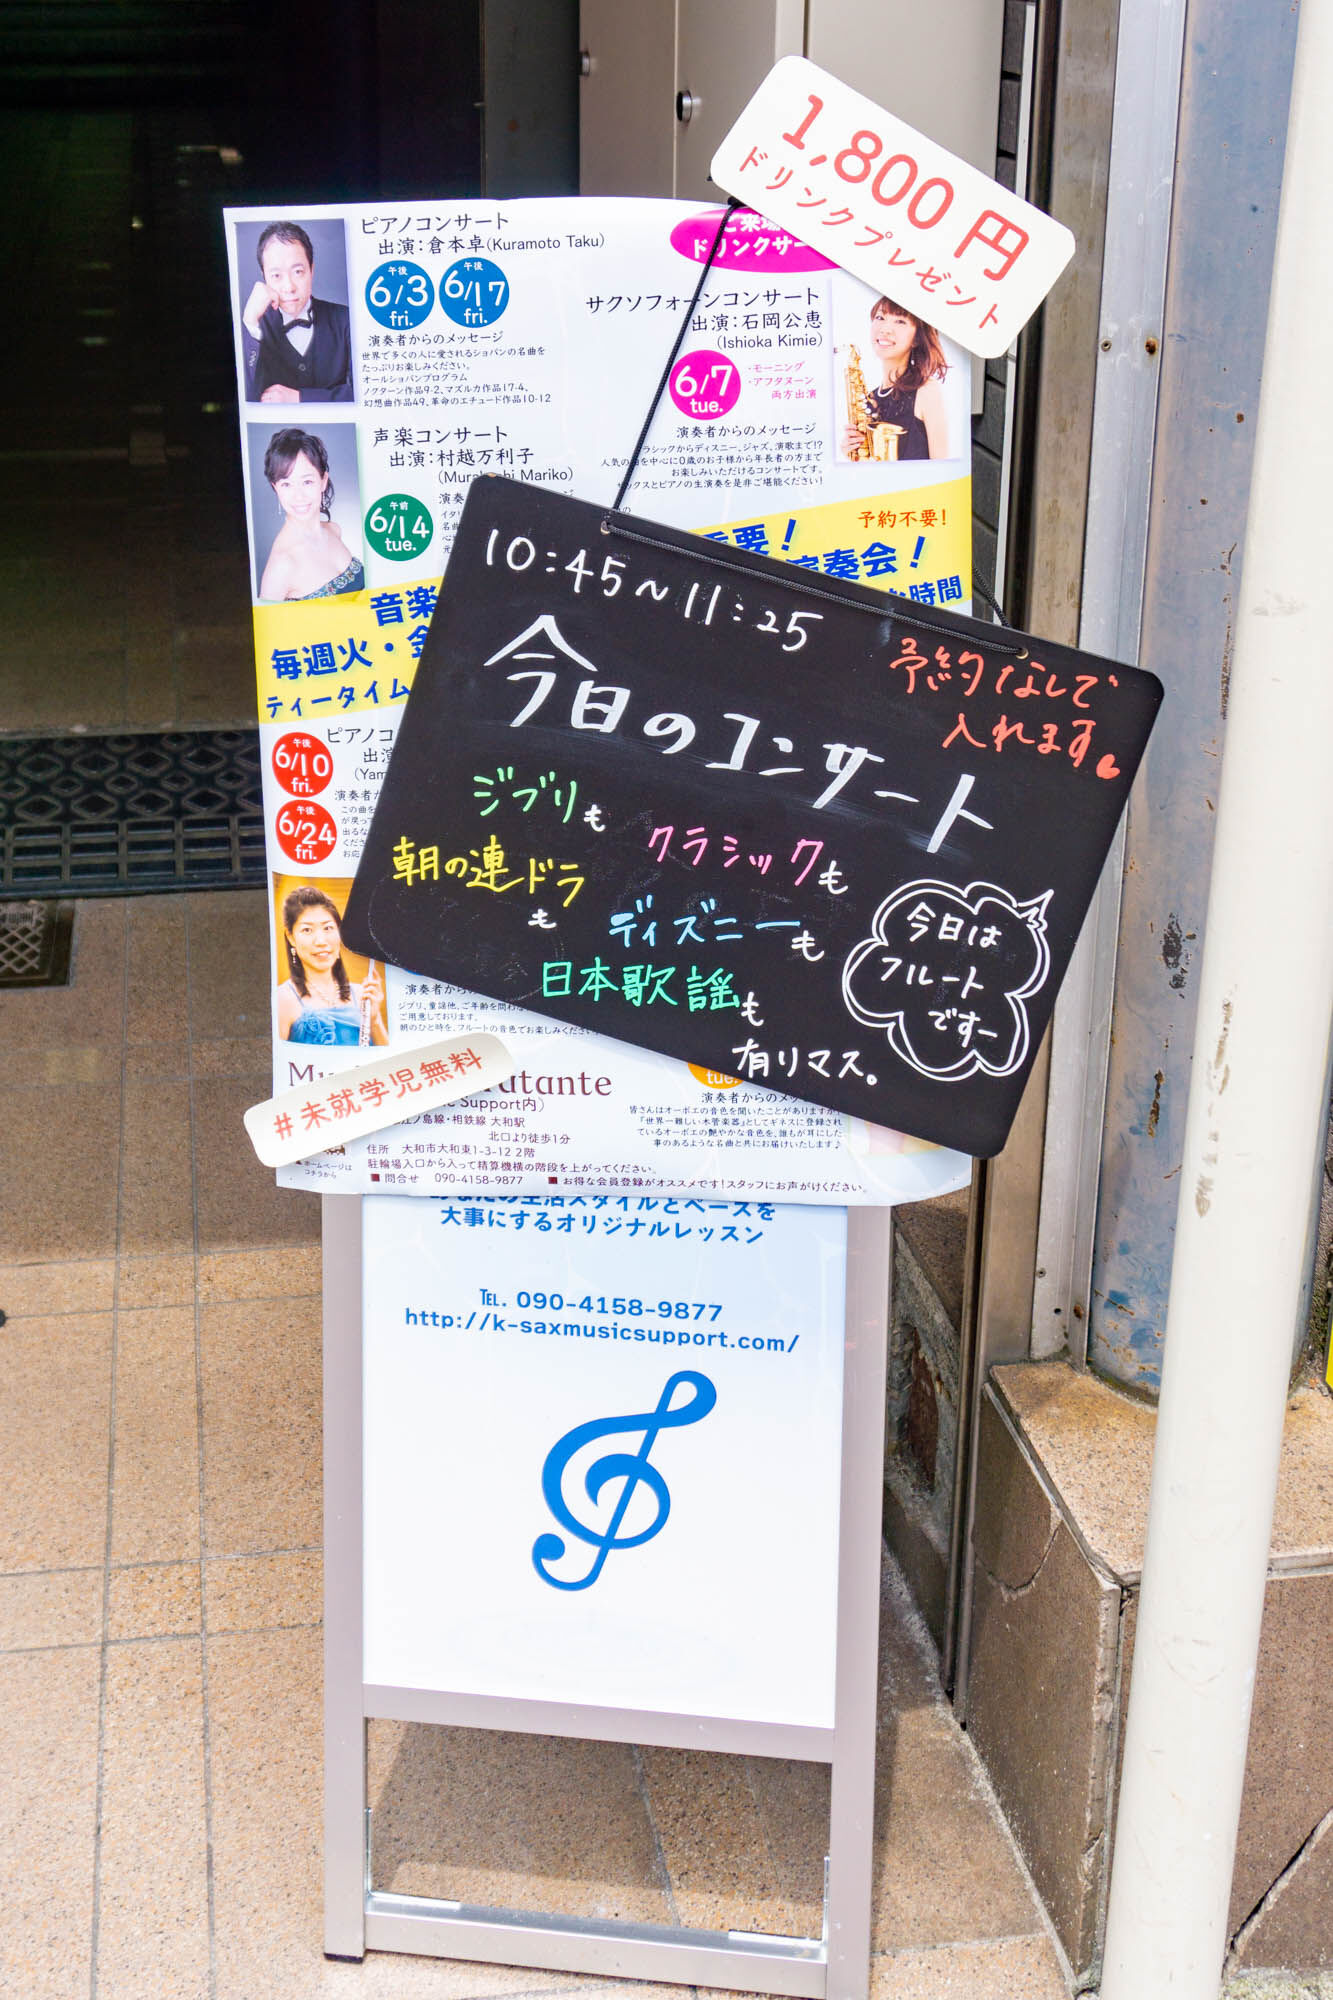 1,800円
ドリンクプレゼント
ピアノコンサート
出演：倉本卓(Kuramoto Taku)
午後
6/3
fri.
午後
6/17
fri.
演奏者からのメッセージ
世界で多くの人に愛されるショパンの名曲を
たっぷりお楽しみください。
オールショパンプログラム
ノクターン作品9-2、マズルカ作品17-4、
幻想曲作品49、革命のエチュード作品10-12
ドリンクサー
サクソフォーンコンサート
出演：石岡公恵
(Ishioka Kimie)
6/7
tue.
・モーニング
・アフタヌーン
両方出演
演奏者からのメッセージ
ラシックからディズニー、ジャズ、演歌まで!?
人気の曲を中心に0歳のお子様から年長者の方まで
お楽しみいただけるコンサートです。
サックスとピアノの生演奏を是非ご堪能ください!
声楽コンサート
出演：村越万利子
Mariko)
午前
6/14
tue.
演奏
イタリ
名曲
予約不要!
要!
演奏会!
時間
音楽
毎週火・金
ティータイム
午後
6/10
fri.
午後
6/24
fri.
ピアノコ
出演
(Yam
演奏者か
この曲を
10:45～11:25
今日のコンサート
予約なしで
入れます
ジブリも
クラシックも
朝の連ドラ
も
ディズニーも
日本歌謡も
有リマス。
今日は
フルート
ですー
演奏者から
ジブリ、童謡他、ご年齢を問わ
ご用意しております。
朝のひと時を、フルートの音色でお楽しみください
#未就学児無料
tante
Support内)
江ノ島線・相鉄線 大和駅
北口より徒歩1分
住所 大和市大和東1-3-12 2階
駐輪場入口から入って精算機横の階段を上がってください。
■問合せ 090-4158-9877 ■お得な会員登録がオススメです!スタッフにお声がけください。
ホームページは
コチラから
tue.
演奏者からのメッセ
皆さんはオーボエの音色を聞いたことがありますか
『世界一難しい木管楽器』としてギネスに登録され
ているオーボエの艶やかな音色を、誰もが耳にした
事のあるような名曲と共にお届けいたします♪
あなたの生活スタイルとペースを
大事にするオリジナルレッスン
TEL. 090-4158-9877
http://k-saxmusicsupport.com/